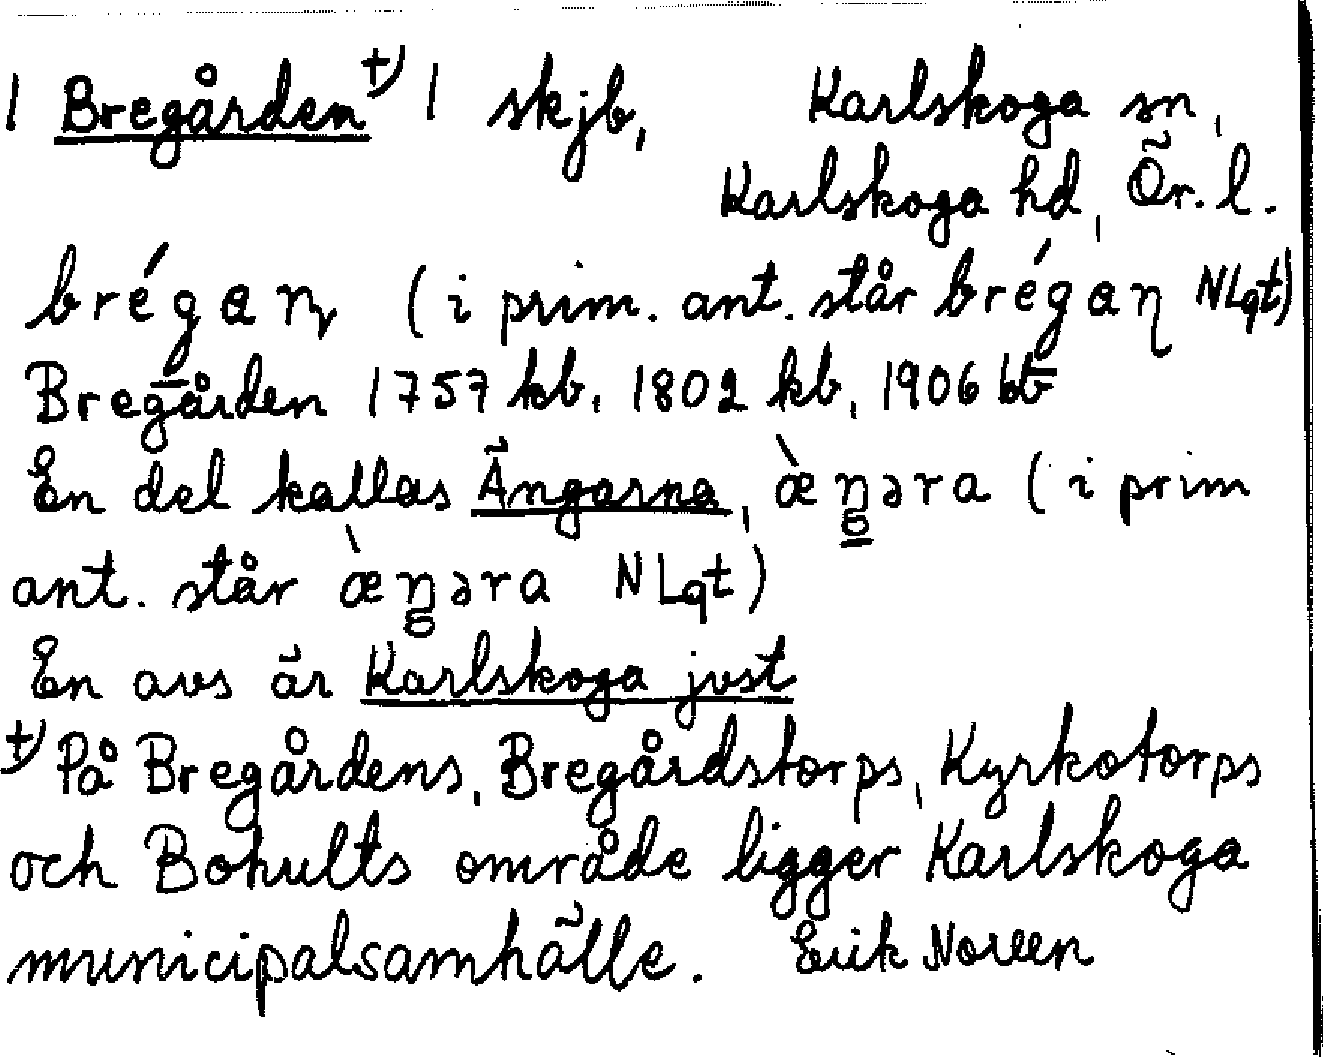 | Bregården +) | skjb, Karlskoga sn,
Karlskoga hd, Ör. l.
brégaɳ (i prim. ant. står brégaɳ NLqt)
Bregården 1757 kb, 1802 kb, 1906
En del kallas Ängarna, æ̀ŋəra (i prim
ant. står æ̀ŋəra NLqt)
En avs är Karlskoga jvst
+) På Bregårdens, Bregårdstorps, Kyrkotorps
och Bohults område ligger Karlskoga
municipalsamhälle. Erik Noreen